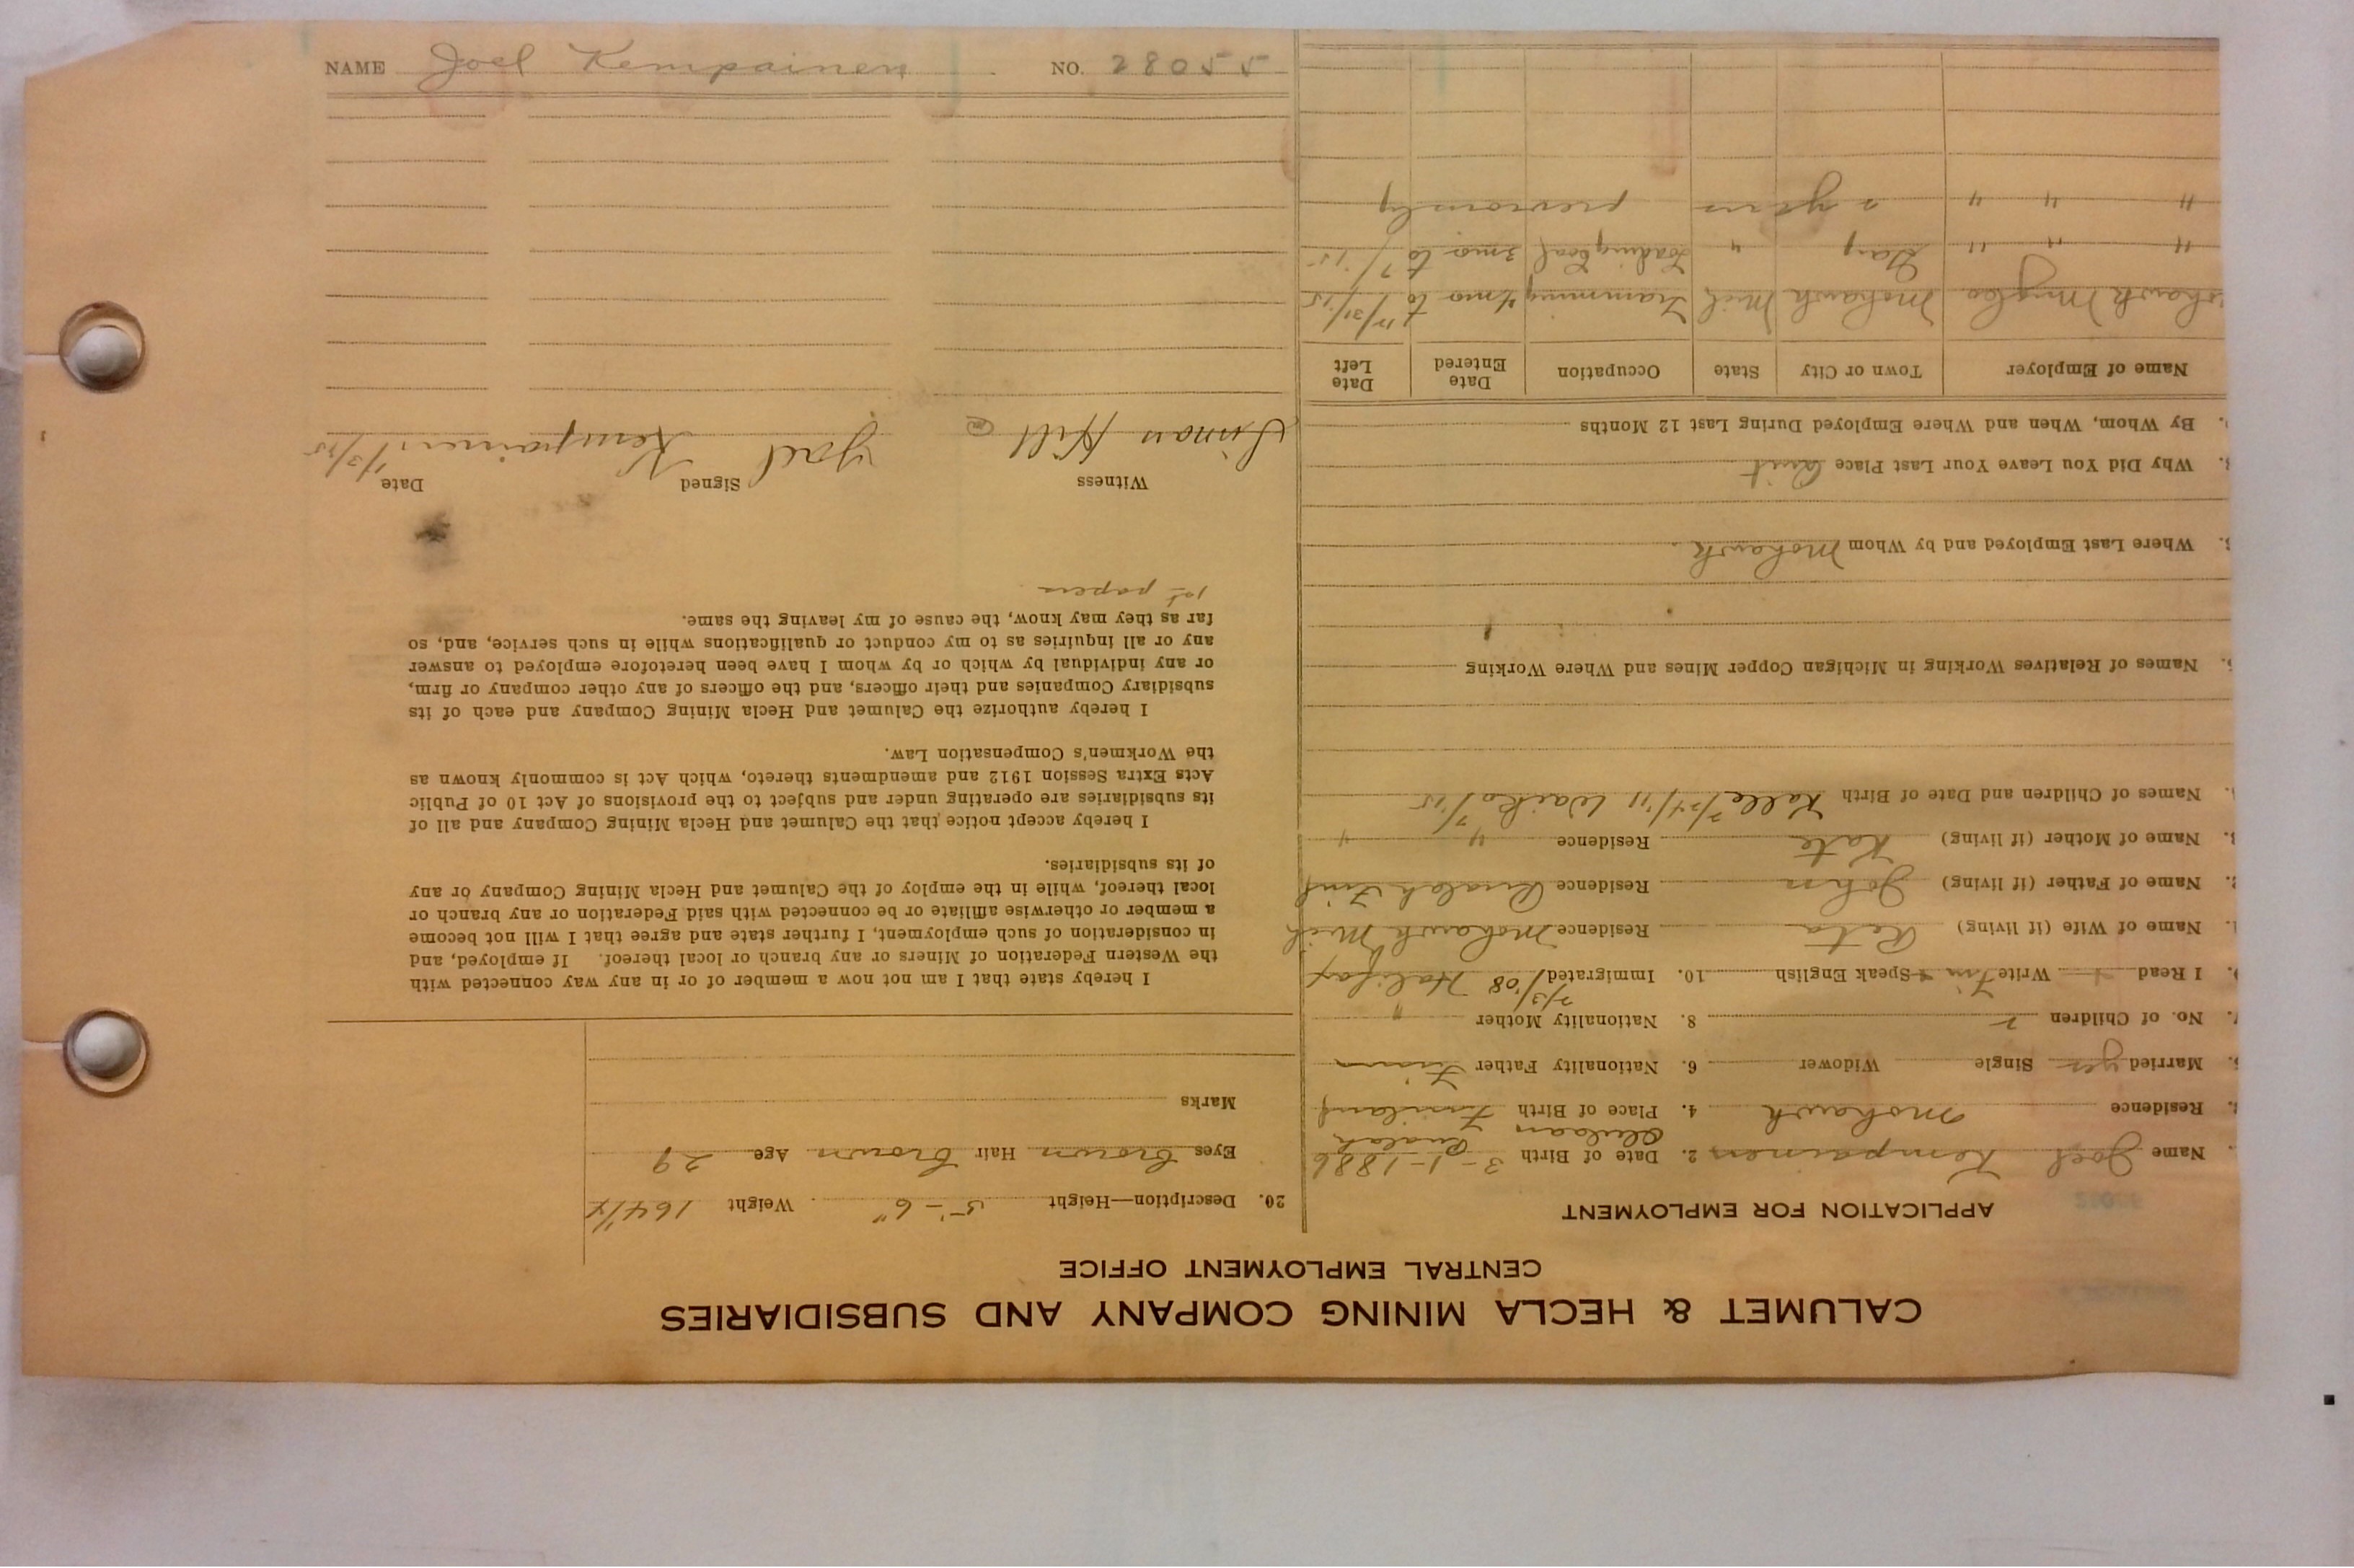 NAME Joel Kempainen NO. 28055
CALUMET & HECLA MINING COMPANY AND SUBSIDIARIES
CENTRAL EMPLOYMENT OFFICE
APPLICATION FOR EMPLOYMENT
Name Joel Kempainen 2. Date of Birth 3-1-1886
Residence Mohawk 4. Place of Birth Finland
Married yes Single Widower 6. Nationality Father Finn
No. of Children 2 8. Nationality Mother "
I Read Write Finn Speak English 10. Immigrated 2/13/'08 Halifax
Name of Wife (if living) Residence Mohawk Mich
Name of Father (if living) John Residence Finl
Name of Mother (if living) Kate Residence " "
Names of Children and Date of Birth Kalle 2/24/'11 7/'15
Names of Relatives Working in Michigan Copper Mines and Where Working
Where Last Employed and by Whom Mohawk.
Why Did You Leave Your Last Place Quit
By Whom, When and Where Employed During Last 12 Months
Name of Employer Town or City State Occupation Date Entered Date Left
Mohawk Mng Co Mohawk Mich Tramming 4 mo to 12/31/15
" " " Gay " Loading Coal 3 mo to 7/15
" " " 2 years previously
20. Description—Height 5'-6" Weight 164 1/4
Eyes brown Hair brown Age 29
Marks
I hereby state that I am not now a member of or in any way connected with
the Western Federation of Miners or any branch or local thereof. If employed, and
in consideration of such employment, I further state and agree that I will not become
a member or otherwise affiliate or be connected with said Federation or any branch or
local thereof, while in the employ of the Calumet and Hecla Mining Company or any
of its subsidiaries.
I hereby accept notice that the Calumet and Hecla Mining Company and all of
its subsidiaries are operating under and subject to the provisions of Act 10 of Public
Acts Extra Session 1912 and amendments thereto, which Act is commonly known as
the Workmen's Compensation Law.
I hereby authorize the Calumet and Hecla Mining Company and each of its
subsidiary Companies and their officers, and the officers of any other company or firm,
or any individual by which or by whom I have been heretofore employed to answer
any or all inquiries as to my conduct or qualifications while in such service, and, so
far as they may know, the cause of my leaving the same.
1st papers
Witness Signed Date
Hill Joel Kempainen 1/3/15